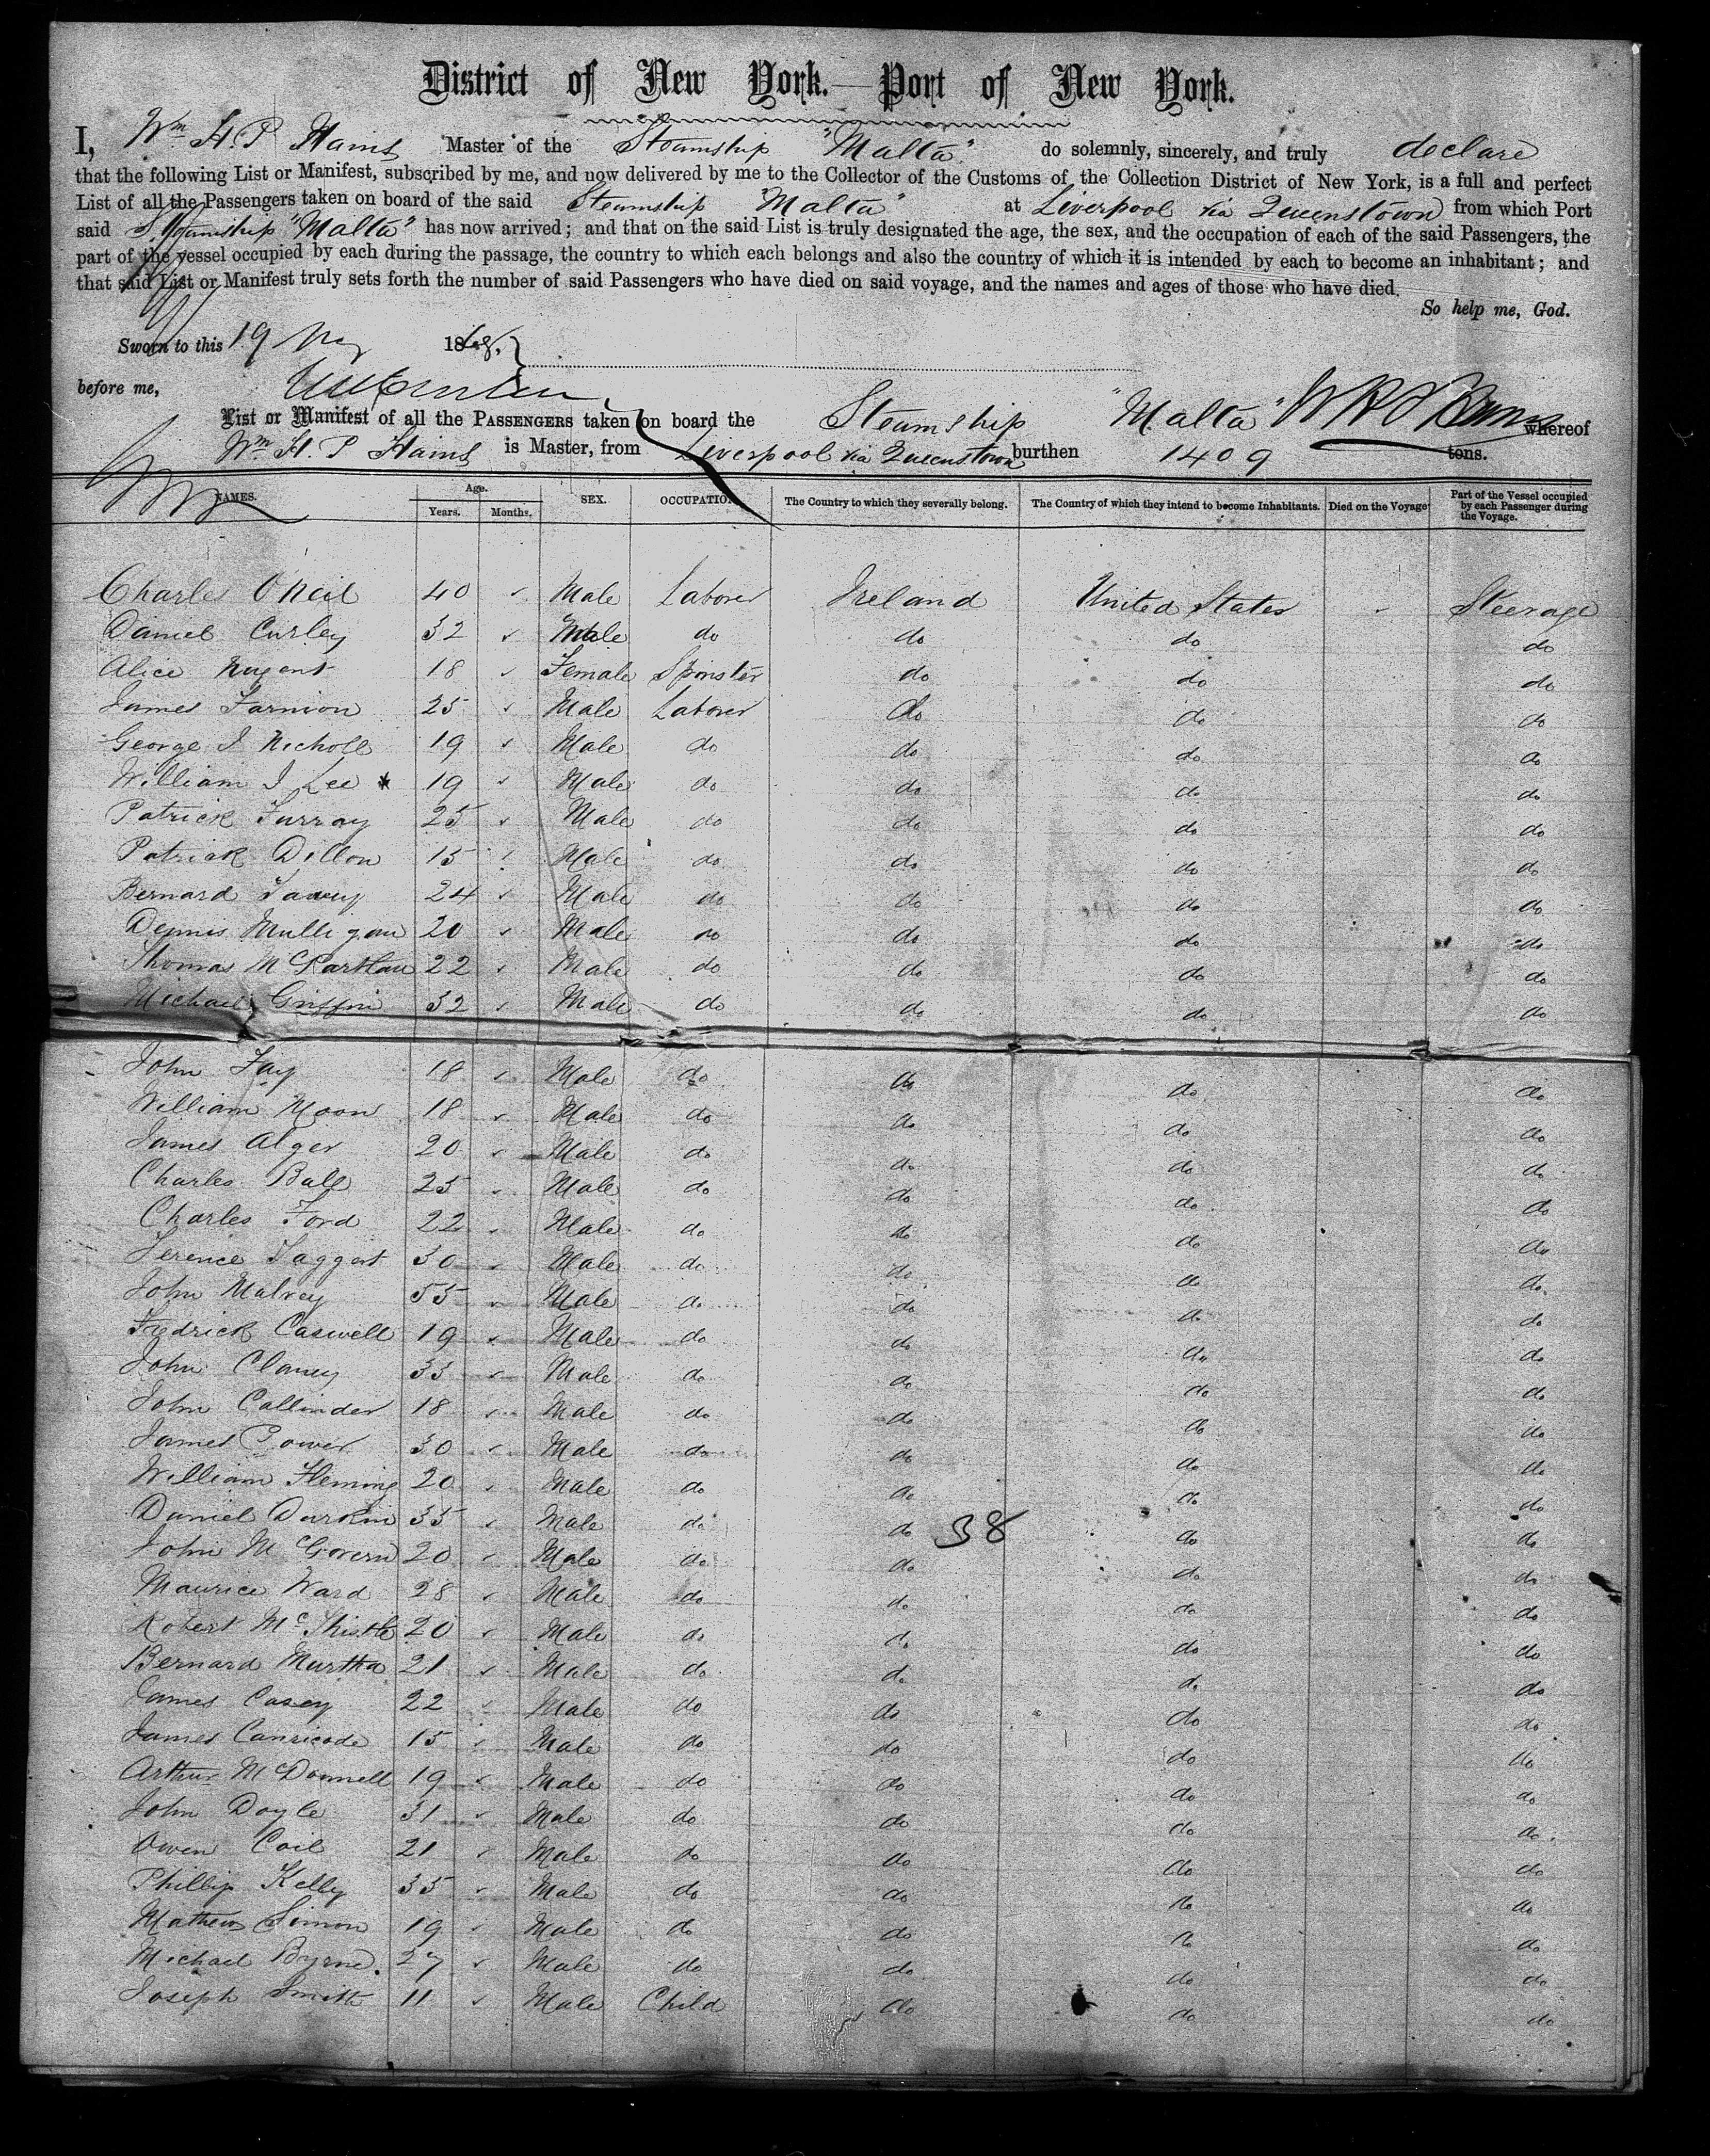 District of New York.—Port of New York.
I, Wm H. P. Hains Master of the Steamship "Malta" do solemnly, sincerely, and truly declare
that the following List or Manifest, subscribed by me, and now delivered by me to the Collector of the Customs of the Collection District of New York, is a full and perfect
List of all the Passengers taken on board of the said Steamship "Malta" at Liverpool via Queenstown from which Port
said Steamship "Malta" has now arrived; and that on the said List is truly designated the age, the sex, and the occupation of each of the said Passengers, the
part of the vessel occupied by each during the passage, the country to which each belongs and also the country of which it is intended by each to become an inhabitant; and
that said List or Manifest truly sets forth the number of said Passengers who have died on said voyage, and the names and ages of those who have died.
So help me, God.
Sworn to this 19 18
before me,
List or Manifest of all the PASSENGERS taken on board the Steamship "Malta" whereof
Wm H. P Hains is Master, from Liverpool via Queenstown burthen 1409 tons.
NAMES. Age. Years. Months. SEX. OCCUPATION. The Country to which they severally belong. The Country of which they intend to become Inhabitants. Died on the Voyage Part of the Vessel occupied by each Passenger during the Voyage.
Charles ONeil 40 Male Laborer Ireland United States Steerage
Daniel Curley 32 Male do do do do
Alice Nugent 18 Female Spinster do do do
James Farnion 25 Male Laborer do do do
George J Nicholl 19 Male do do do do
William J Lee 19 Male do do do do
Patrick Furray 25 Male do do do do
Patrick Dillon 15 Male do do do do
Bernard 24 Male do do do do
Dennis Mulligan 20 Male do do do do
Thomas McPartlan 22 Male do do do do
Michael Griffin 32 Male do do do do
John Fay 18 Male do do do do
William Moon 18 Male do do do do
James Alger 20 Male do do do do
Charles Ball 25 Male do do do do
Charles Ford 22 Male do do do do
Terence Taggert 30 Male do do do do
John Malvey 55 Male do do do do
Fredrick Caswell 19 Male do do do do
John Clancy 33 Male do do do do
John Callinder 18 Male do do do do
James Power 30 Male do do do do
William Fleming 20 Male do do do do
Daniel Durkin 35 Male do do 38 do do
John McGovern 20 Male do do do do
Maurice Ward 28 Male do do do do
Robert McThistle 20 Male do do do do
Bernard Murtha 21 Male do do do do
James Casey 22 Male do do do do
James Canricode 15 Male do do do do
Arthur McDonnell 19 Male do do do do
John Doyle 31 Male do do do do
Owen Coil 21 Male do do do do
Phillip Kelly 35 Male do do do do
Mathew Simon 19 Male do do do do
Michael Byrne 27 Male do do do do
Joseph Smith 11 Male Child do do do